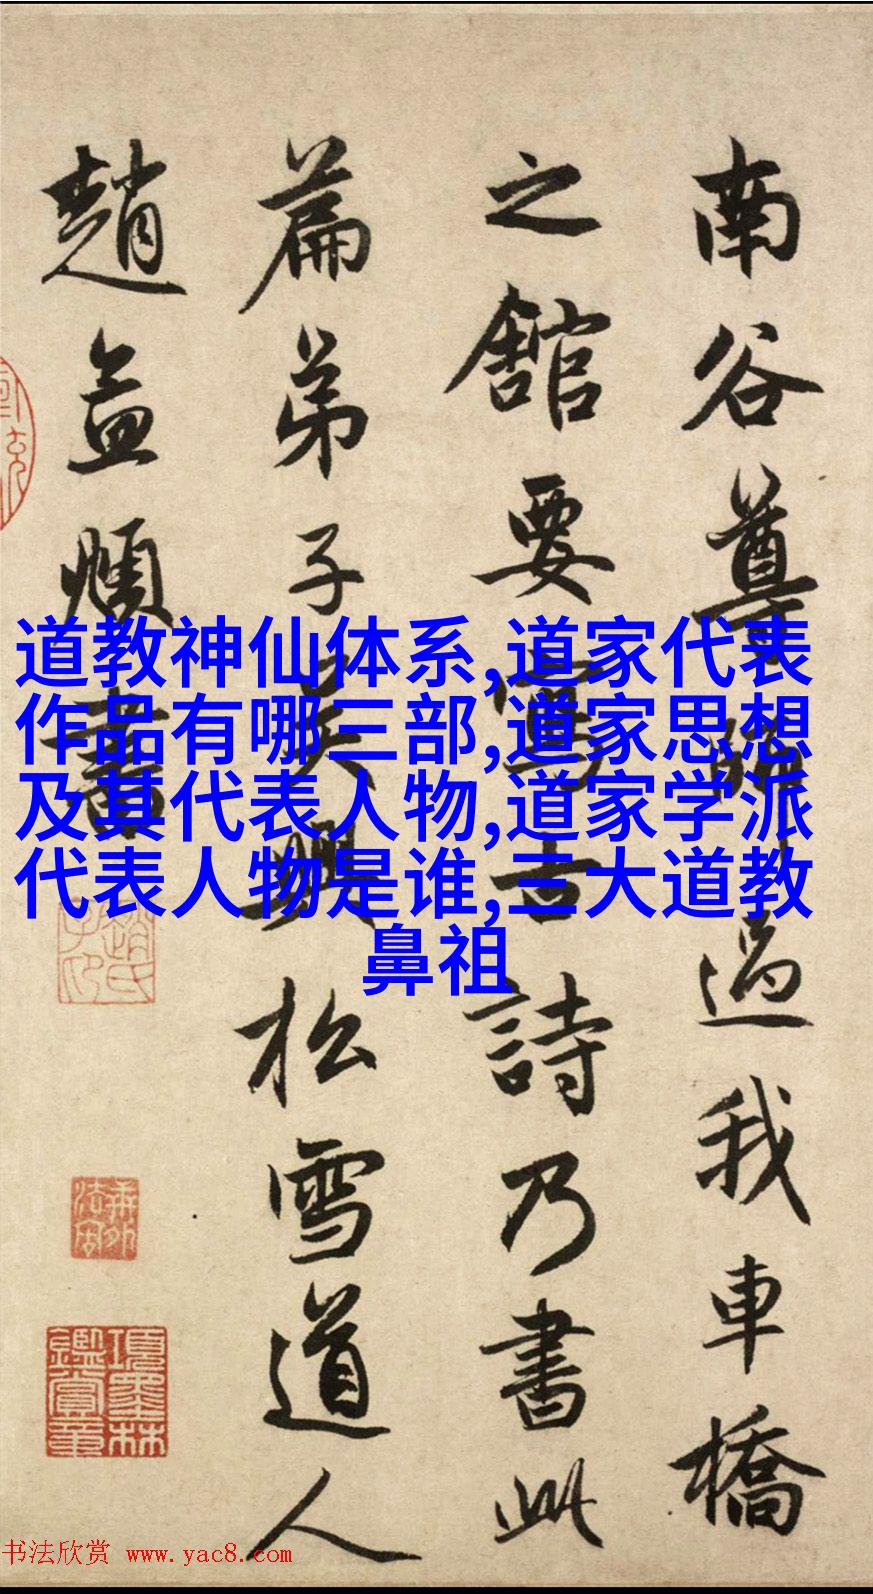 南谷尊師過我車橋
之館要寫古詩乃書此
篇弟子吳興松雪道人
趙孟頫書
道教神仙体系,道家代表
作品有哪三部,道家思想
及其代表人物,道家学派
代表人物是谁,三大道教
鼻祖
項墨林鑑賞章
书法欣赏 www.yac8.com